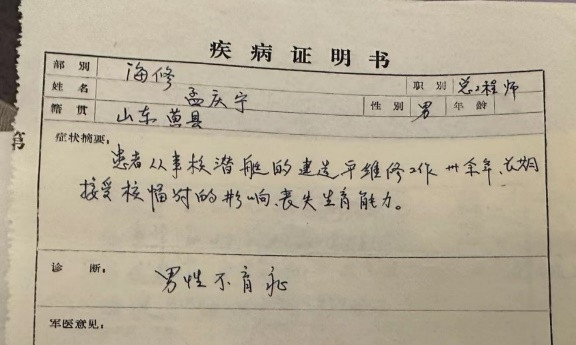 疾病证明书
部别 海修 职别 总工程师
姓名 孟庆宁 性别 男 年龄
籍贯 山东莒县
第
症状摘要：
患者从事核潜艇的建造平维修工作卅余年、长期
接受核幅射的影响、丧失生育能力。
诊断： 男性不育症
军医意见：